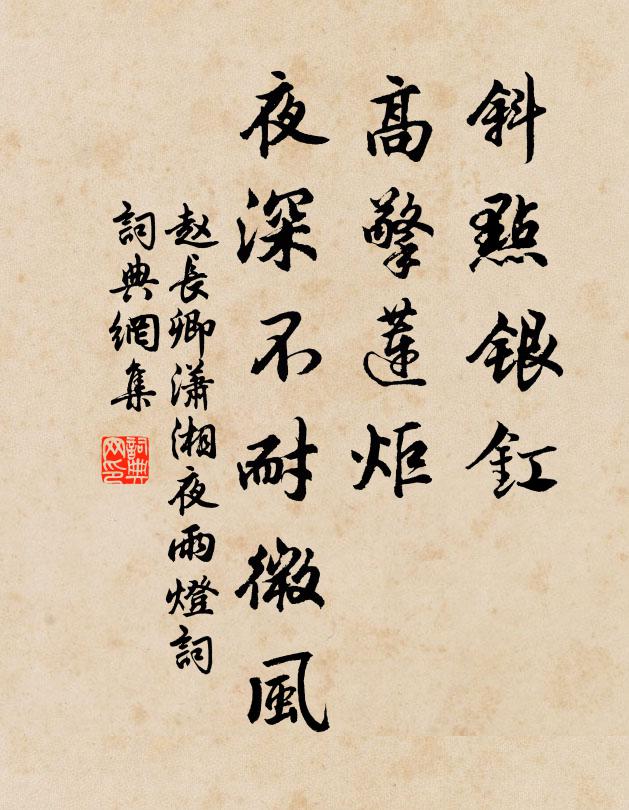 斜點銀釭
高擎蓮炬
夜深不耐微風
赵長卿瀟湘夜雨燈詞
詞典網集
詞典网印